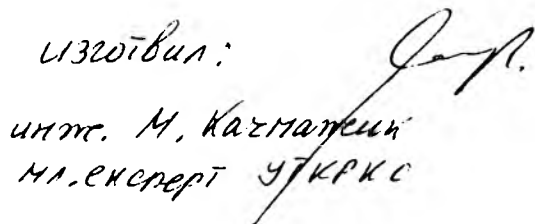 изготвил:
инж. М. Качмаж
мл. експерт УТКРКС